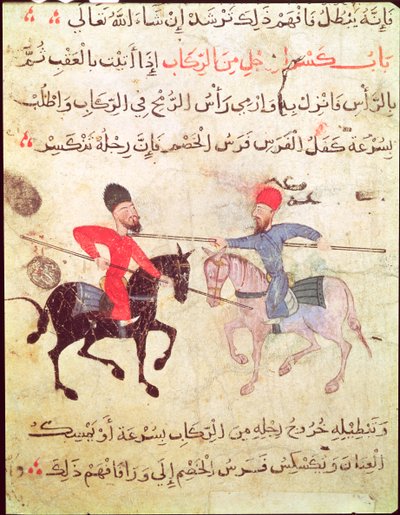 فَإِنَّهُ يَبْطُلُ فَافْهَمْ ذَلِكَ تَرْشُدْ إِنْ شَاءَ اللهُ تَعَالَى
بَابُ كَسْرِ رِجْلٍ مِنَ الرِّكَابِ إِذَا أَتَيْتَ بِالْعَقْبِ ثُمَّ
بِالرَّأْسِ فَاتْرُكْ وَارْمِي رَأْسَ الرُّمْحِ فِي الرِّكَابِ وَاطْلُبْ
بِسُرْعَةٍ كَفَلَ الْفَرَسِ فَرَسِ الْخَصْمِ فَإِنَّ رِجْلَهُ تَنْكَسِرُ
وَتَبْطِيلُهُ خُرُوجُ رِجْلِهِ مِنَ الرِّكَابِ بِسُرْعَةٍ أَوْ يُمْسِكُ
الْعِنَانَ وَيُكَسْكِسُ فَرَسَ الْخَصْمِ إِلَى وَرَا فَافْهَمْ ذَلِكَ